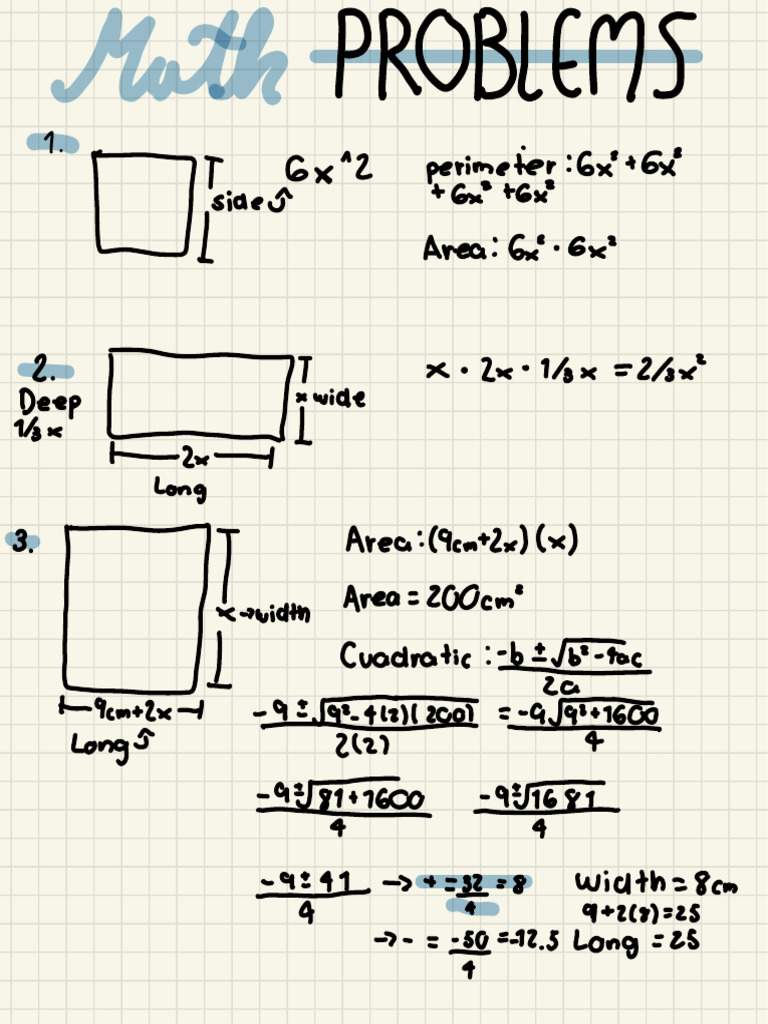 Math PROBLEMS
1.
side
6x^2
perimeter : 6x² + 6x²
+ 6x² + 6x²
Area : 6x² · 6x²
2.
Deep
1/3 x
x wide
2x
Long
x · 2x · 1/3 x = 2/3 x²
3.
x → width
9cm+2x
Long
Area : (9cm+2x) (x)
Area = 200cm²
Cuadratic : -b ± √b² - 4ac / 2a
-9 ± √9² - 4(2)(200) / 2(2) = -9 √9² + 1600 / 4
-9 ± √81 + 1600 / 4
-9 ± √1681 / 4
-9 ± 41 / 4 → + = 32 / 4 = 8
→ - = -50 / 4 = -12.5
Width = 8cm
9+2(8) = 25
Long = 25